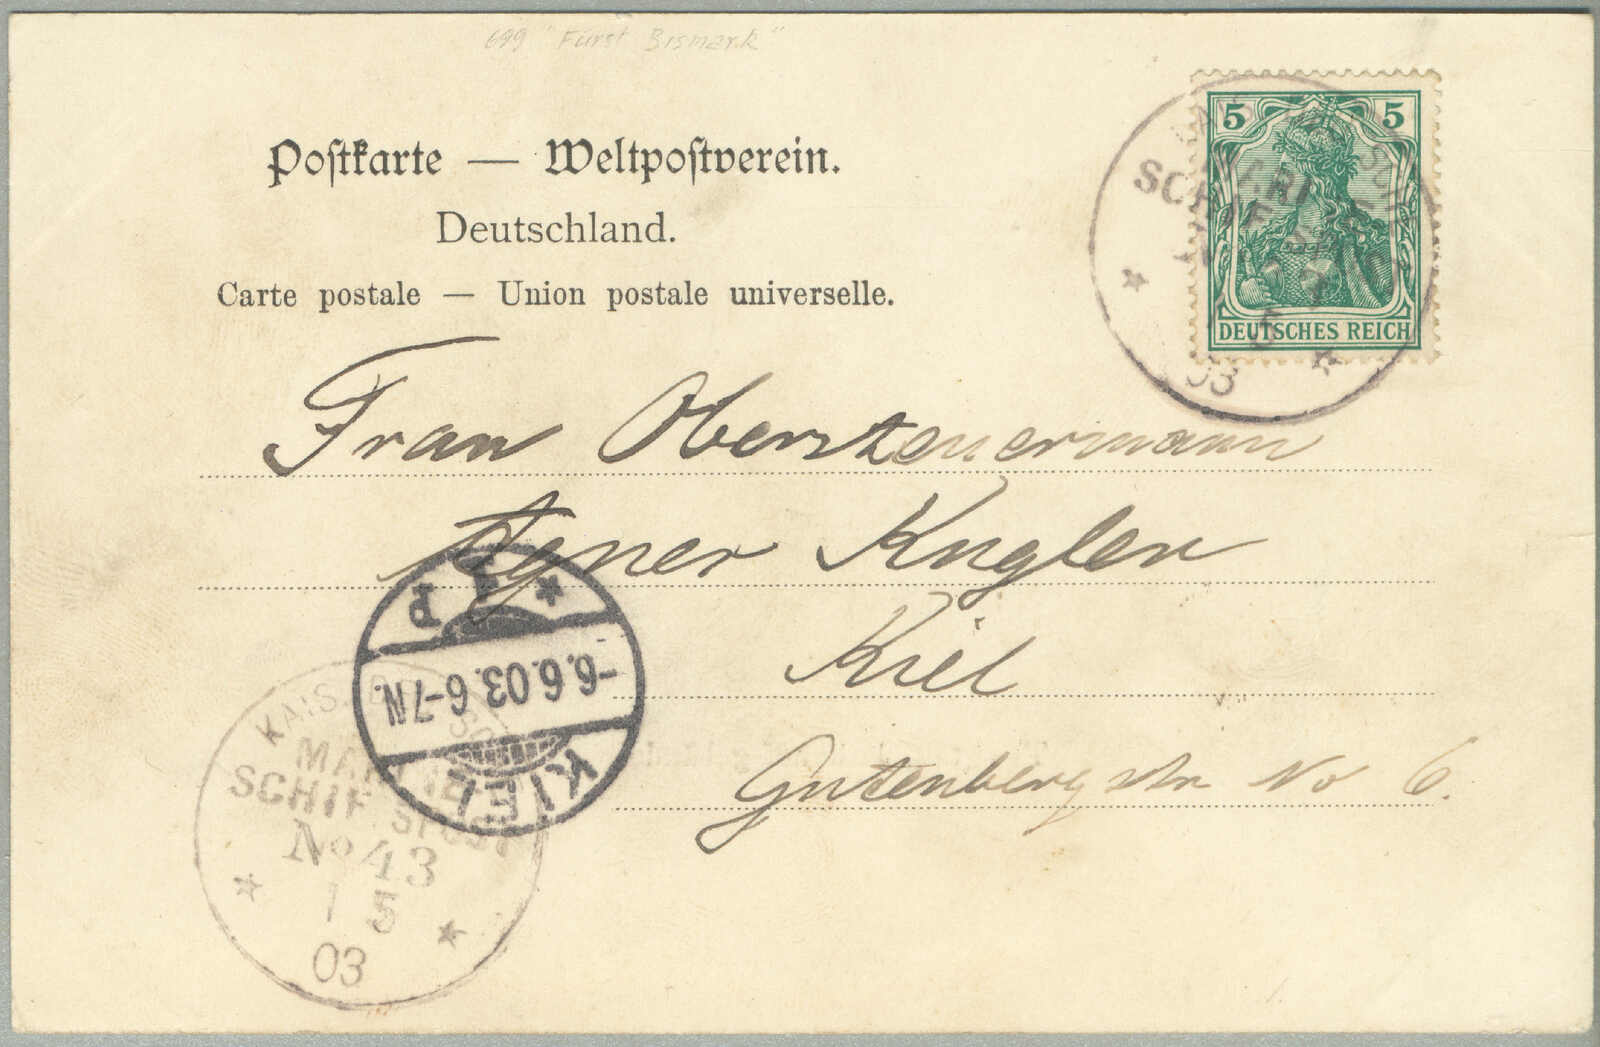 699 "Fürst Bismark"
5 5
DEUTSCHES REICH
03
Postkarte — Weltpostverein.
Deutschland.
Carte postale — Union postale universelle.
Frau Obersteuermann
Agner Kugler
Kiel
Gutenbergstr No 6.
KIEL
-6.6.03.6-7N.
KAIS. D.
MARINE
SCHIFFSPOST
No 43
1 5
03